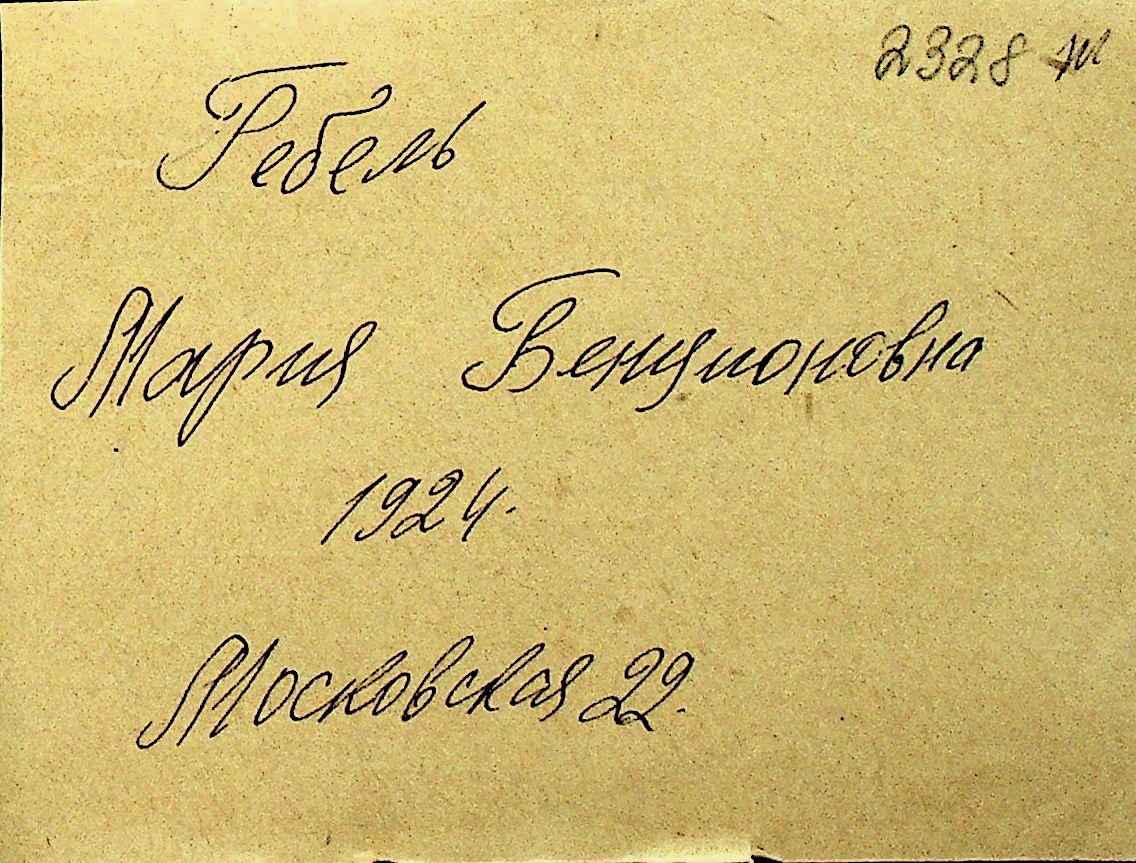 2328 м
Ребель
Мария Бенционовна
1924.
Московская 22.